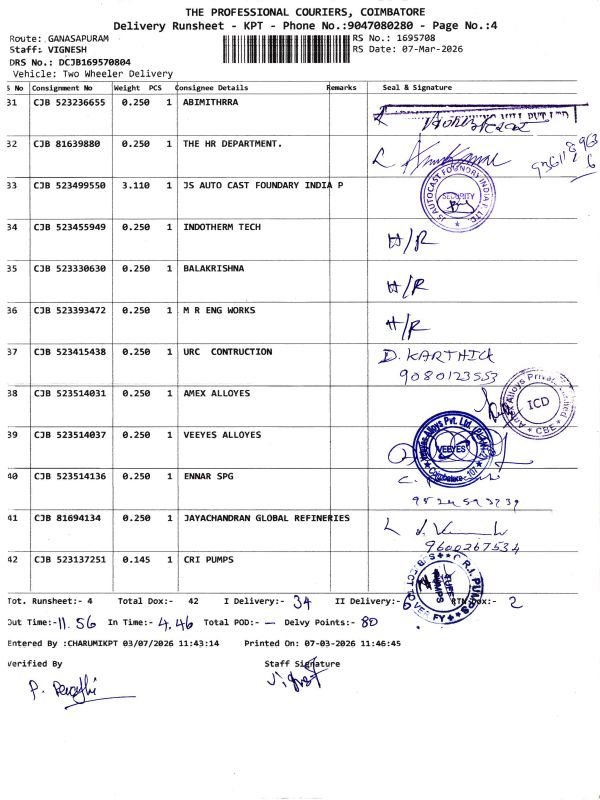 THE PROFESSIONAL COURIERS, COIMBATORE
Delivery Runsheet - KPT - Phone No.:9047080280 - Page No.:4
Route: GANASAPURAM
RS No.: 1695708
Staff: VIGNESH
RS Date: 07-Mar-2026
DRS No.: DCJB169570804
Vehicle: Two Wheeler Delivery
S No Consignment No Weight PCS Consignee Details Remarks Seal & Signature
31 CJB 523236655 0.250 1 ABIMITHRRA
32 CJB 81639880 0.250 1 THE HR DEPARTMENT.
33 CJB 523499550 3.110 1 JS AUTO CAST FOUNDARY INDIA P
JS AUTOCAST FOUNDRY INDIA P. LTD. SECURITY
34 CJB 523455949 0.250 1 INDOTHERM TECH H/R
35 CJB 523330630 0.250 1 BALAKRISHNA H/R
36 CJB 523393472 0.250 1 M R ENG WORKS H/R
37 CJB 523415438 0.250 1 URC CONTRUCTION D. KARTHICK
9080123553
38 CJB 523514031 0.250 1 AMEX ALLOYES
Alloys Private Limited ICD CBE
39 CJB 523514037 0.250 1 VEEYES ALLOYES
Veeyes Alloys Pvt. Ltd. VEEYES Coimbatore - 107
40 CJB 523514136 0.250 1 ENNAR SPG
41 CJB 81694134 0.250 1 JAYACHANDRAN GLOBAL REFINERIES
9600267534
42 CJB 523137251 0.145 1 CRI PUMPS
C.R.I. PUMPS
Tot. Runsheet:- 4 Total Dox:- 42 I Delivery:- 34 II Delivery:- 6 RTN Dox:- 2
Out Time:- 11.56 In Time:- 4.46 Total POD:- — Delvy Points:- 80
Entered By :CHARUMIKPT 03/07/2026 11:43:14 Printed On: 07-03-2026 11:46:45
Verified By Staff Signature